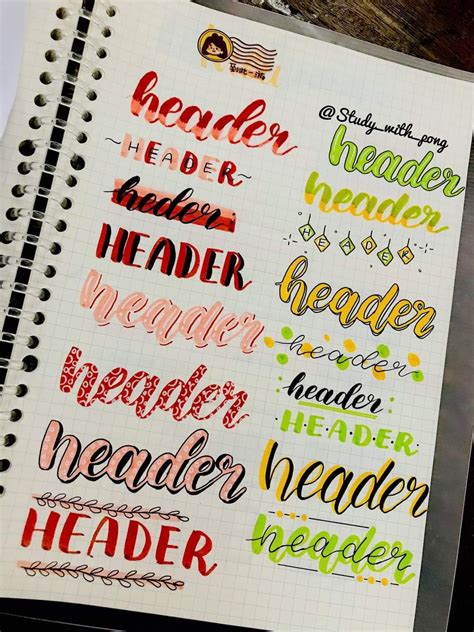 header
HEADER
heder
HEADER
header
header
header
HEADER
@Study_with_pong
header
header
HEADER
header
header
header
HEADER
header
header